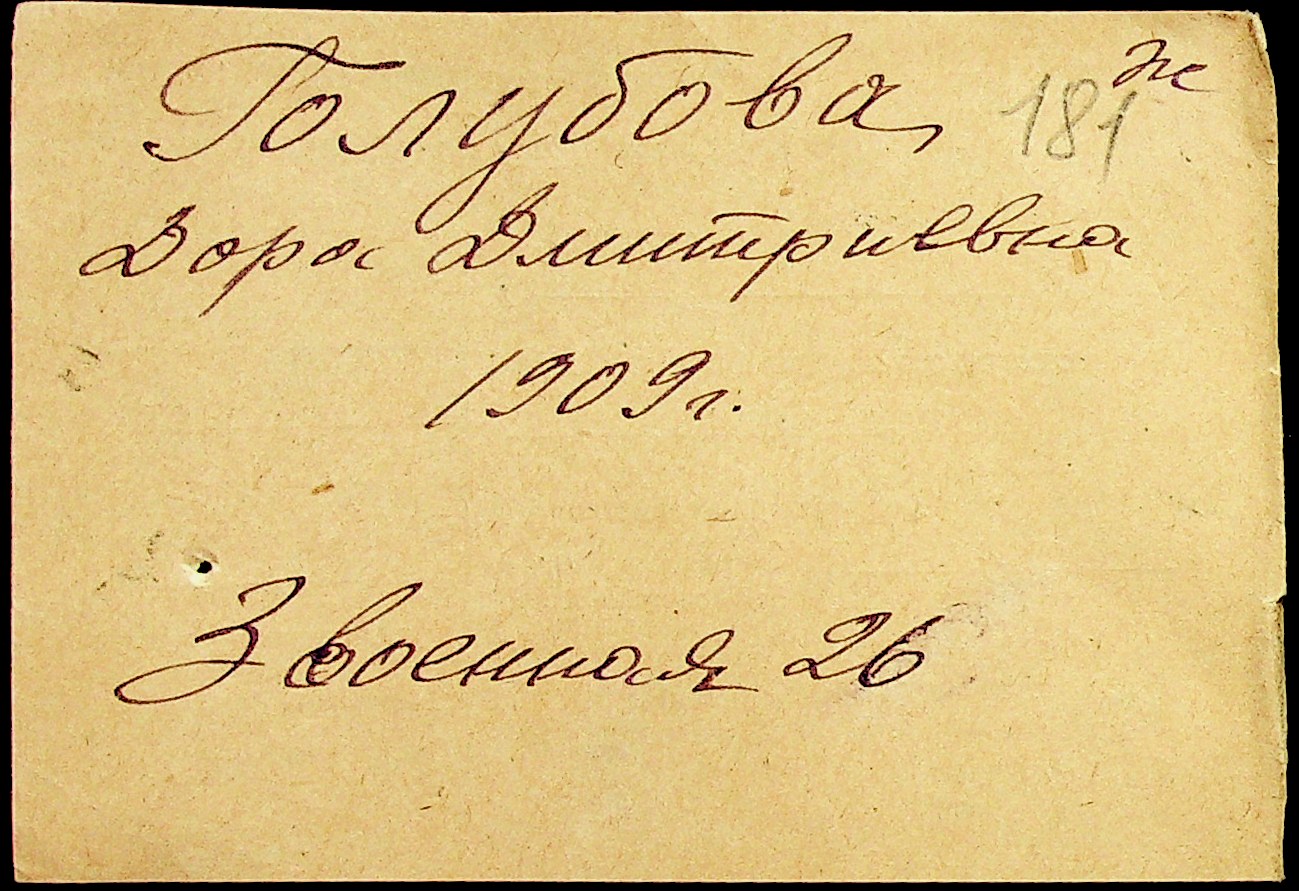 Голубова, 181 ж
Дора Дмитриевна
1909г.
3 военная 26